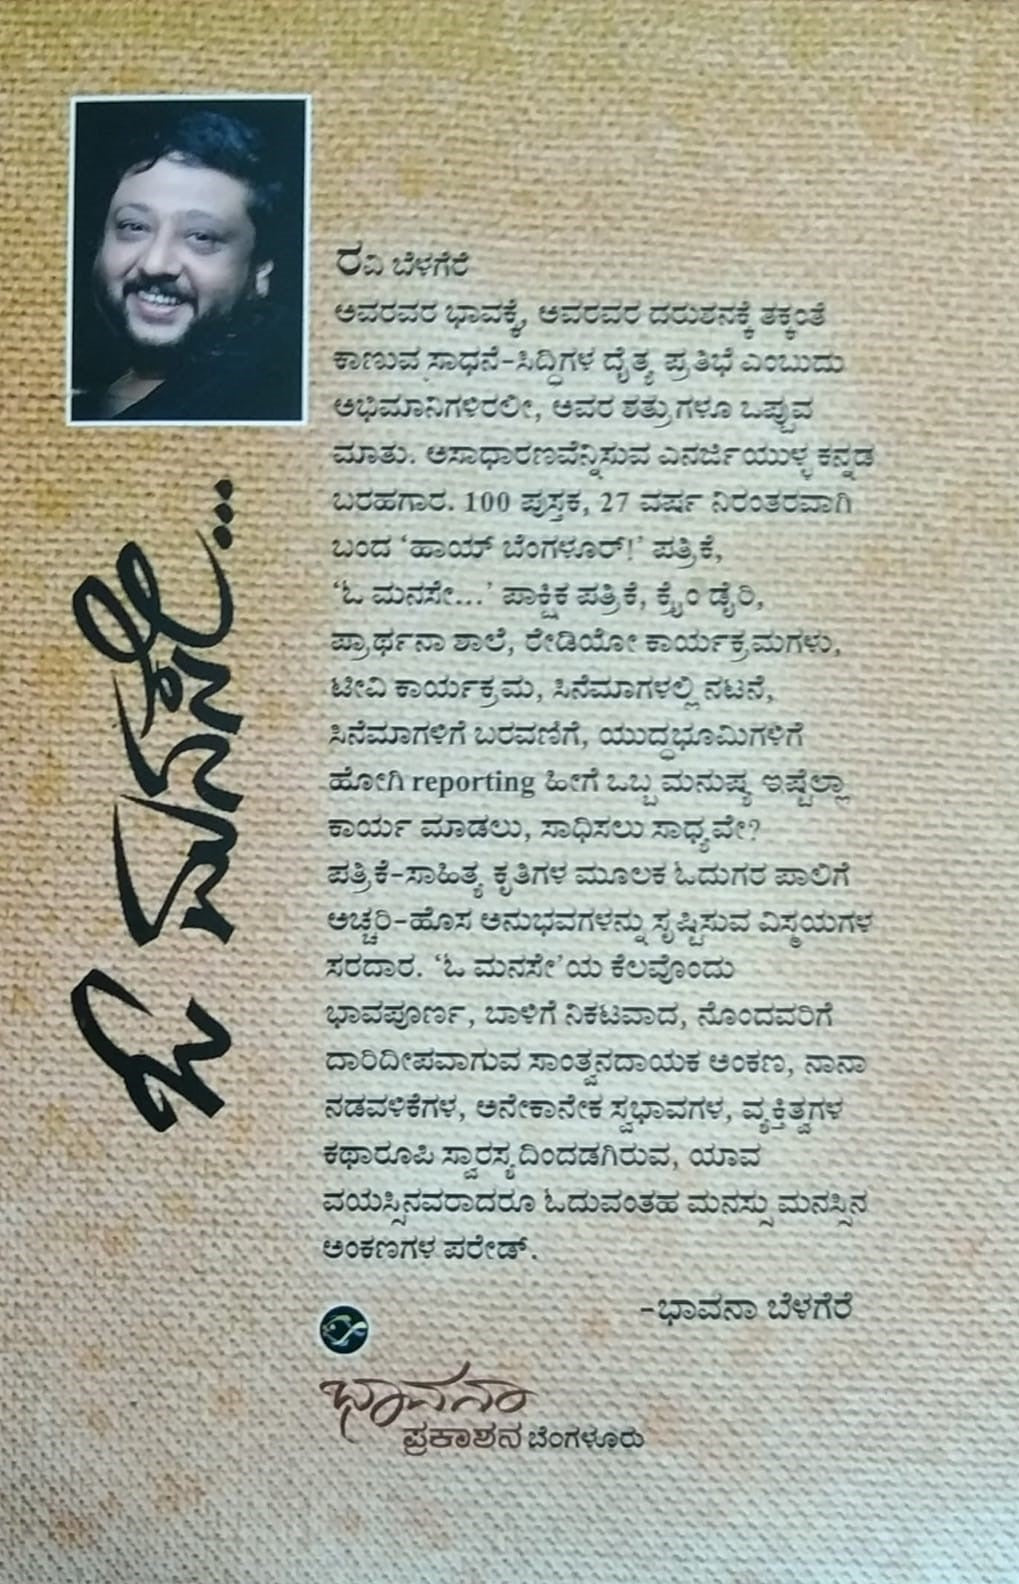 ಓ ಮನಸೇ...
ರವಿ ಬೆಳಗೆರೆ
ಅವರವರ ಭಾವಕ್ಕೆ, ಅವರವರ ದರುಶನಕ್ಕೆ ತಕ್ಕಂತೆ
ಕಾಣುವ ಸಾಧನೆ-ಸಿದ್ಧಿಗಳ ದೈತ್ಯ ಪ್ರತಿಭೆ ಎಂಬುದು
ಅಭಿಮಾನಿಗಳಿರಲೀ, ಅವರ ಶತ್ರುಗಳೂ ಒಪ್ಪುವ
ಮಾತು. ಅಸಾಧಾರಣವೆನ್ನಿಸುವ ಎನರ್ಜಿಯುಳ್ಳ ಕನ್ನಡ
ಬರಹಗಾರ. 100 ಪುಸ್ತಕ, 27 ವರ್ಷ ನಿರಂತರವಾಗಿ
ಬಂದ ‘ಹಾಯ್ ಬೆಂಗಳೂರ್!’ ಪತ್ರಿಕೆ,
‘ಓ ಮನಸೇ...’ ಪಾಕ್ಷಿಕ ಪತ್ರಿಕೆ, ಕ್ರೈಂ ಡೈರಿ,
ಪ್ರಾರ್ಥನಾ ಶಾಲೆ, ರೇಡಿಯೋ ಕಾರ್ಯಕ್ರಮಗಳು,
ಟೀವಿ ಕಾರ್ಯಕ್ರಮ, ಸಿನೆಮಾಗಳಲ್ಲಿ ನಟನೆ,
ಸಿನೆಮಾಗಳಿಗೆ ಬರವಣಿಗೆ, ಯುದ್ಧಭೂಮಿಗಳಿಗೆ
ಹೋಗಿ reporting ಹೀಗೆ ಒಬ್ಬ ಮನುಷ್ಯ ಇಷ್ಟೆಲ್ಲಾ
ಕಾರ್ಯ ಮಾಡಲು, ಸಾಧಿಸಲು ಸಾಧ್ಯವೇ?
ಪತ್ರಿಕೆ-ಸಾಹಿತ್ಯ ಕೃತಿಗಳ ಮೂಲಕ ಓದುಗರ ಪಾಲಿಗೆ
ಅಚ್ಚರಿ-ಹೊಸ ಅನುಭವಗಳನ್ನು ಸೃಷ್ಟಿಸುವ ವಿಸ್ಮಯಗಳ
ಸರದಾರ. ‘ಓ ಮನಸೇ’ಯ ಕೆಲವೊಂದು
ಭಾವಪೂರ್ಣ, ಬಾಳಿಗೆ ನಿಕಟವಾದ, ನೊಂದವರಿಗೆ
ದಾರಿದೀಪವಾಗುವ ಸಾಂತ್ವನದಾಯಕ ಅಂಕಣ, ನಾನಾ
ನಡವಳಿಕೆಗಳ, ಅನೇಕಾನೇಕ ಸ್ವಭಾವಗಳ, ವ್ಯಕ್ತಿತ್ವಗಳ
ಕಥಾರೂಪಿ ಸ್ವಾರಸ್ಯದಿಂದಡಗಿರುವ, ಯಾವ
ವಯಸ್ಸಿನವರಾದರೂ ಓದುವಂತಹ ಮನಸ್ಸು ಮನಸ್ಸಿನ
ಅಂಕಣಗಳ ಪರೇಡ್.
-ಭಾವನಾ ಬೆಳಗೆರೆ
ಭಾವನಾ
ಪ್ರಕಾಶನ ಬೆಂಗಳೂರು